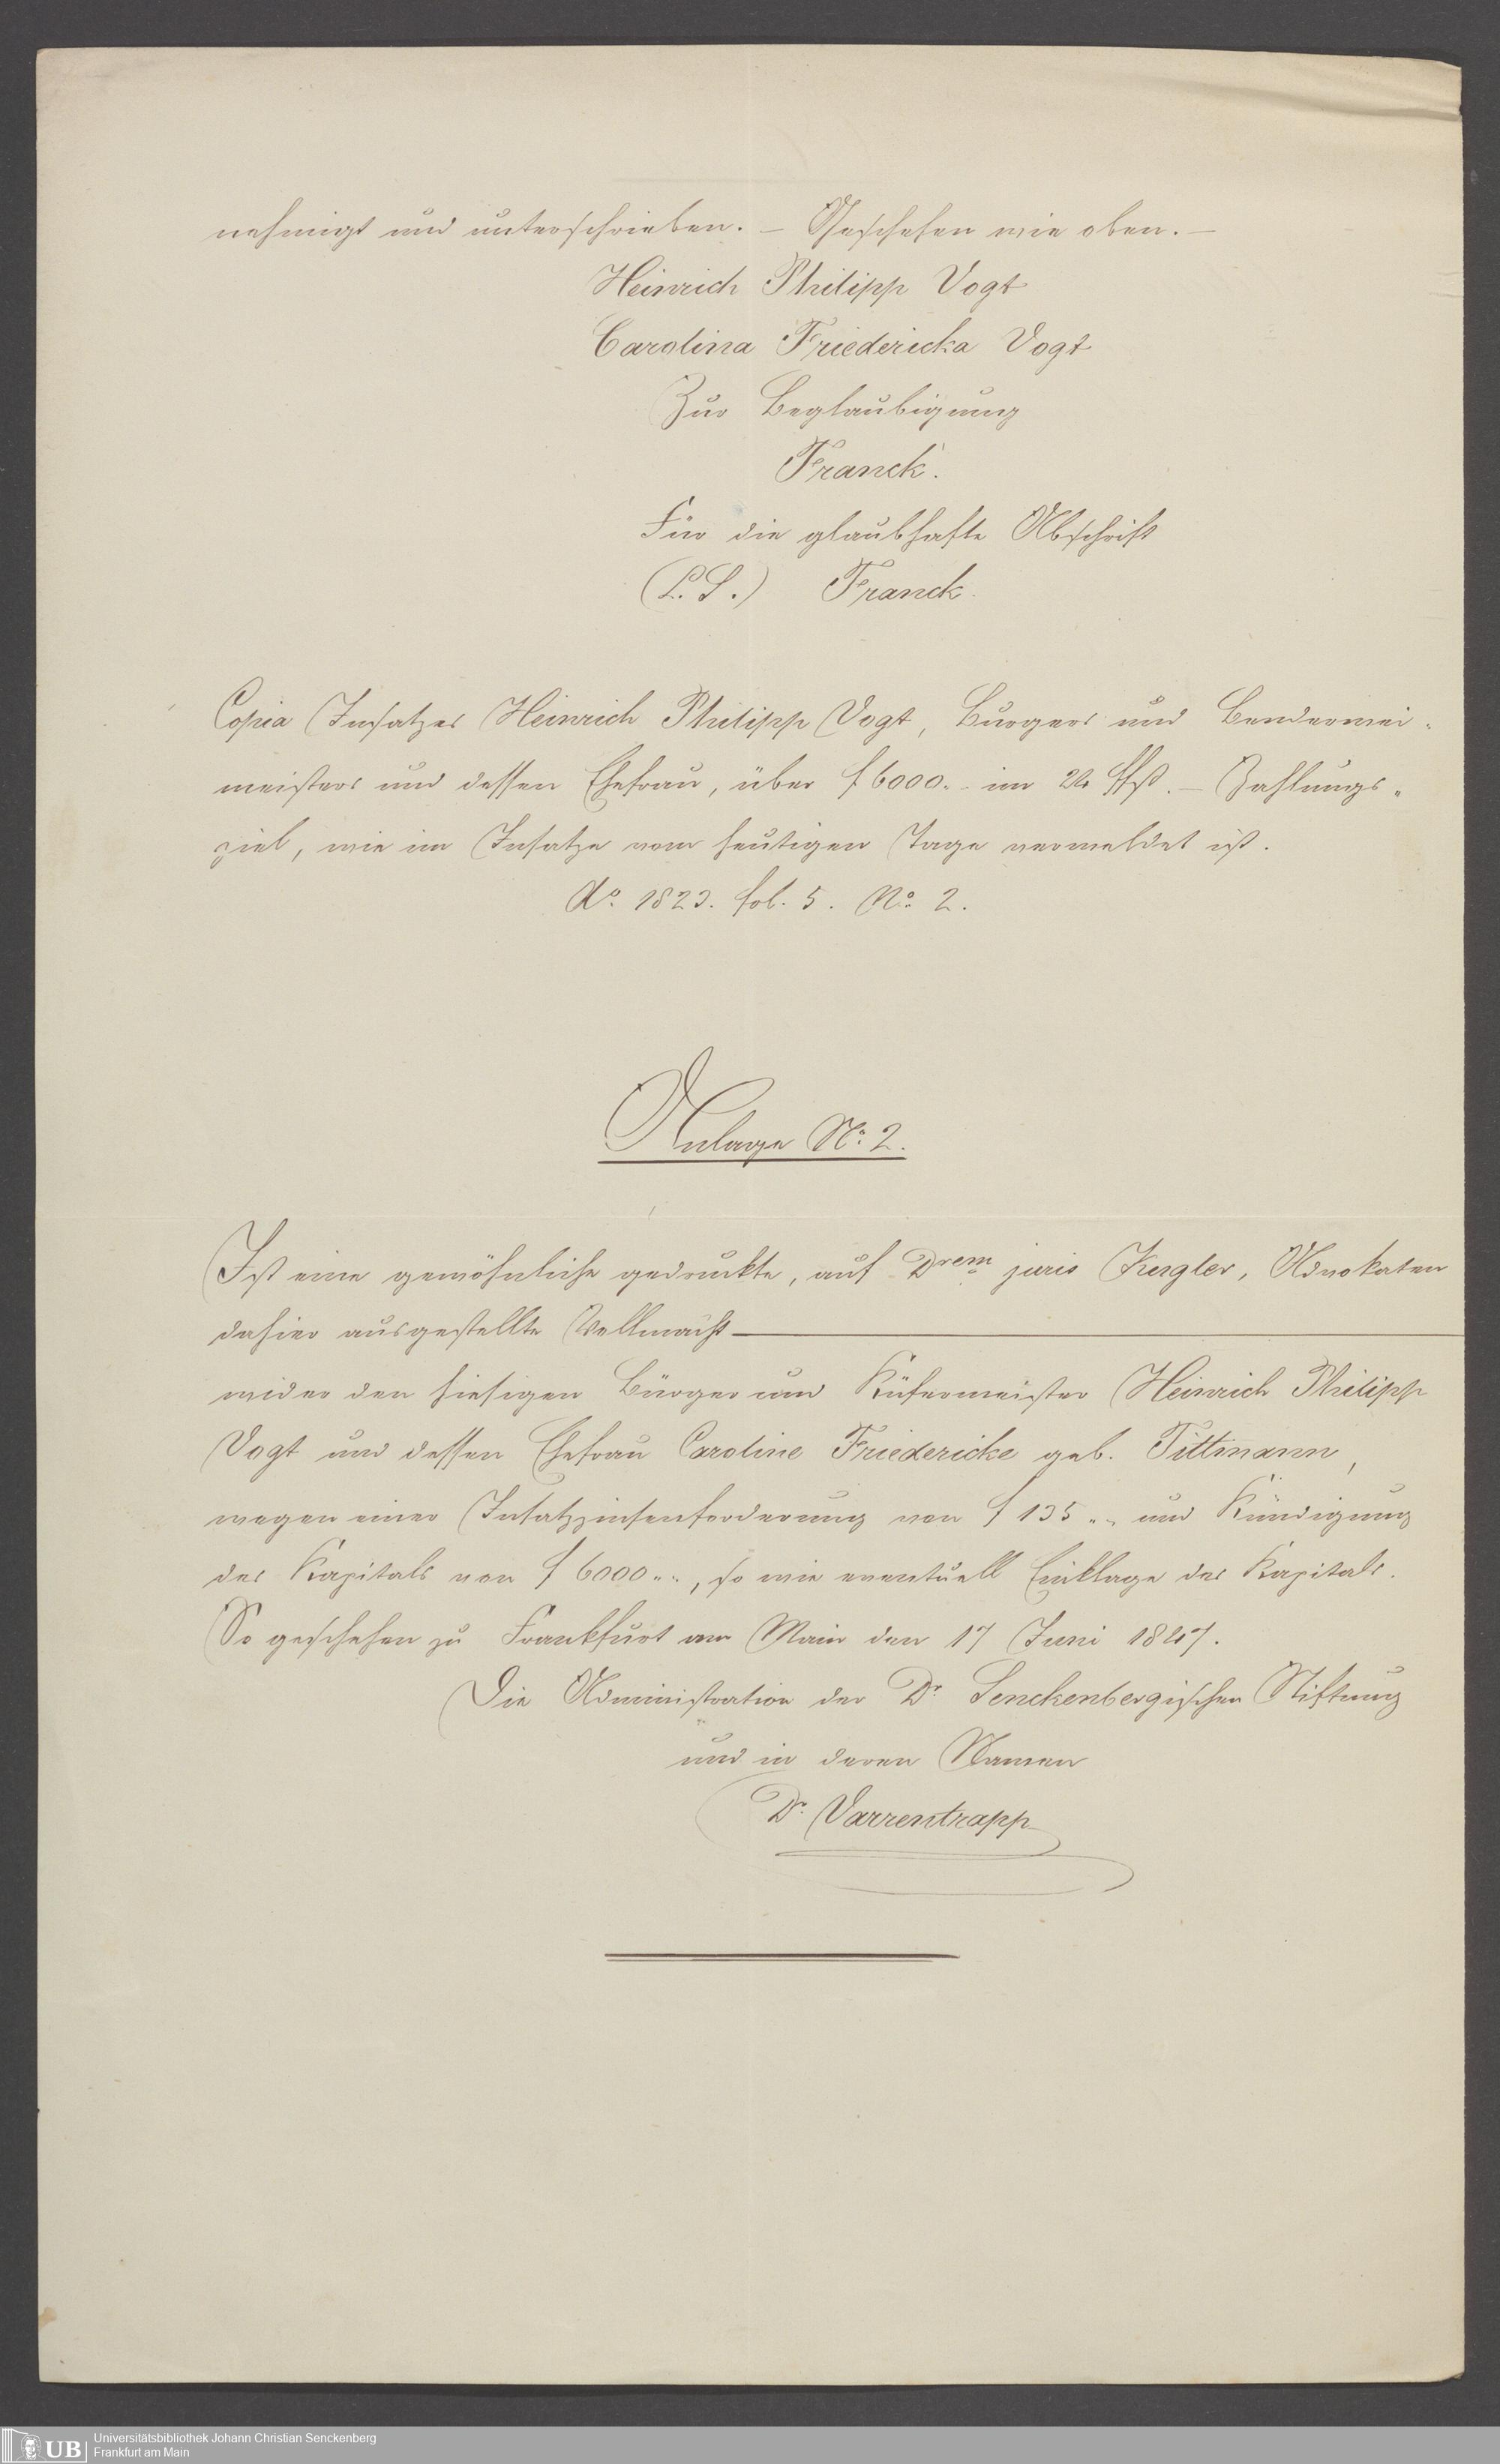 nehmigt und unterschrieben. – Geschehen wie oben. –
Heinrich Philipp Vogt
Carolina Friedericka Vogt
Zur Beglaubigung
Franck.
Für die glaubhafte Abschrift
(L. S.) Franck.
Copia Insatzes Heinrich Philipp Vogt, Burgers und Bendermei-
meisters und dessen Ehefrau, über f 6000.- im 24 ffß. – Zahlungs-
ziel, wie im Insatze vom heutigen Tage vermeldet ist.
Ao. 1823. fol. 5. No. 2.
Anlage No. 2.
Ist eine gewöhnliche gedruckte, auf Drem juris Kugler, Advokaten
dahier ausgestellte Vollmacht —
wider den hiesigen Bürger und Küfermeister Heinrich Philipp
Vogt und dessen Ehefrau Caroline Friedericke geb. Tittmann,
wegen einer Insatzzinsenforderung von f 135.- und Kündigung
des Kapitals von f 6000.-, so wie eventuell Einklage des Kapitals.
So geschehen zu Frankfurt am Main den 17 Juni 1847.
Die Administration der Dr. Senckenbergischen Stiftung
und in deren Namen
Dr. Varrentrapp
UB
Universitätsbibliothek Johann Christian Senckenberg
Frankfurt am Main